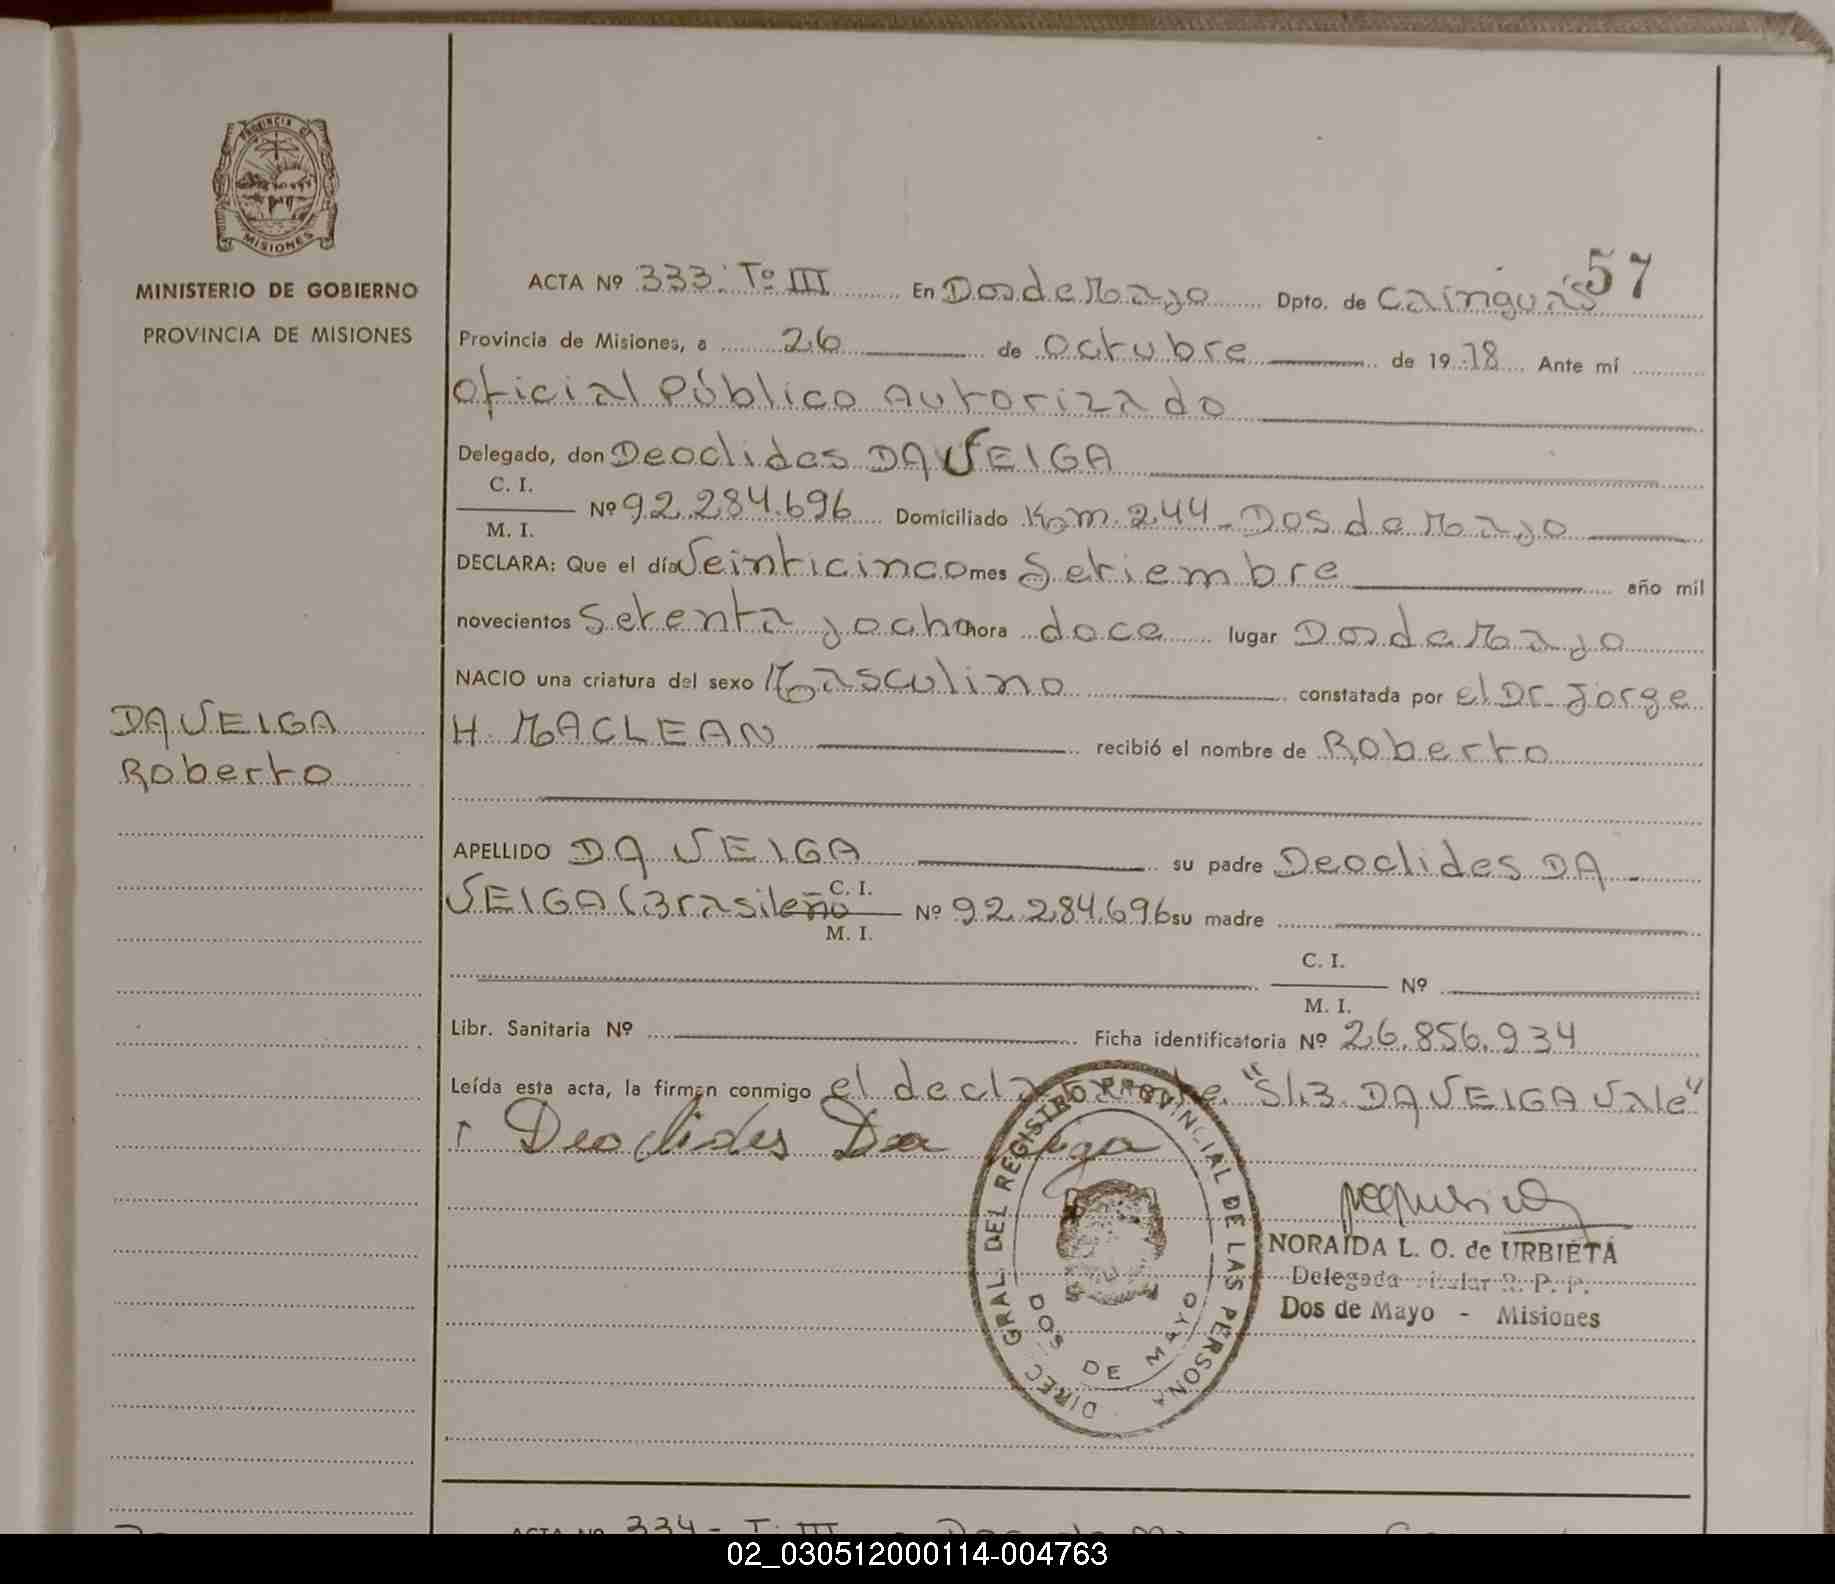 PROVINCIA DE
MISIONES
MINISTERIO DE GOBIERNO
PROVINCIA DE MISIONES
57
ACTA Nº 333. Tº III En Dos de Mayo Dpto. de Cainguás
Provincia de Misiones, a 26 de Octubre de 1978 Ante mí
Oficial Público Autorizado
Delegado, don Deoclides DA VEIGA
C. I.
M. I.
Nº 92.284.696 Domiciliado Km. 244 - Dos de Mayo
DECLARA: Que el día Veinticinco mes Setiembre año mil
novecientos Setenta y ocho hora doce lugar Dos de Mayo
NACIO una criatura del sexo Masculino constatada por el Dr. Jorge
H. MACLEAN recibió el nombre de Roberto
DA VEIGA
Roberto
APELLIDO DA VEIGA su padre Deoclides DA
VEIGA (Brasileño C. I. M. I. Nº 92.284.696 su madre
C. I.
M. I.
Nº
Libr. Sanitaria Nº Ficha identificatoria Nº 26.856.934
Leída esta acta, la firman conmigo el declarante. "S/B. DA VEIGA Vale"
Deoclides Da Veiga
DIREC. GRAL. DEL REGISTRO PROVINCIAL DE LAS PERSONA
DOS DE MAYO
NORAIDA L. O. de URBIETA
Delegada Titular R. P. P.
Dos de Mayo - Misiones
ACTA Nº 334 - Tº III
02_030512000114-004763